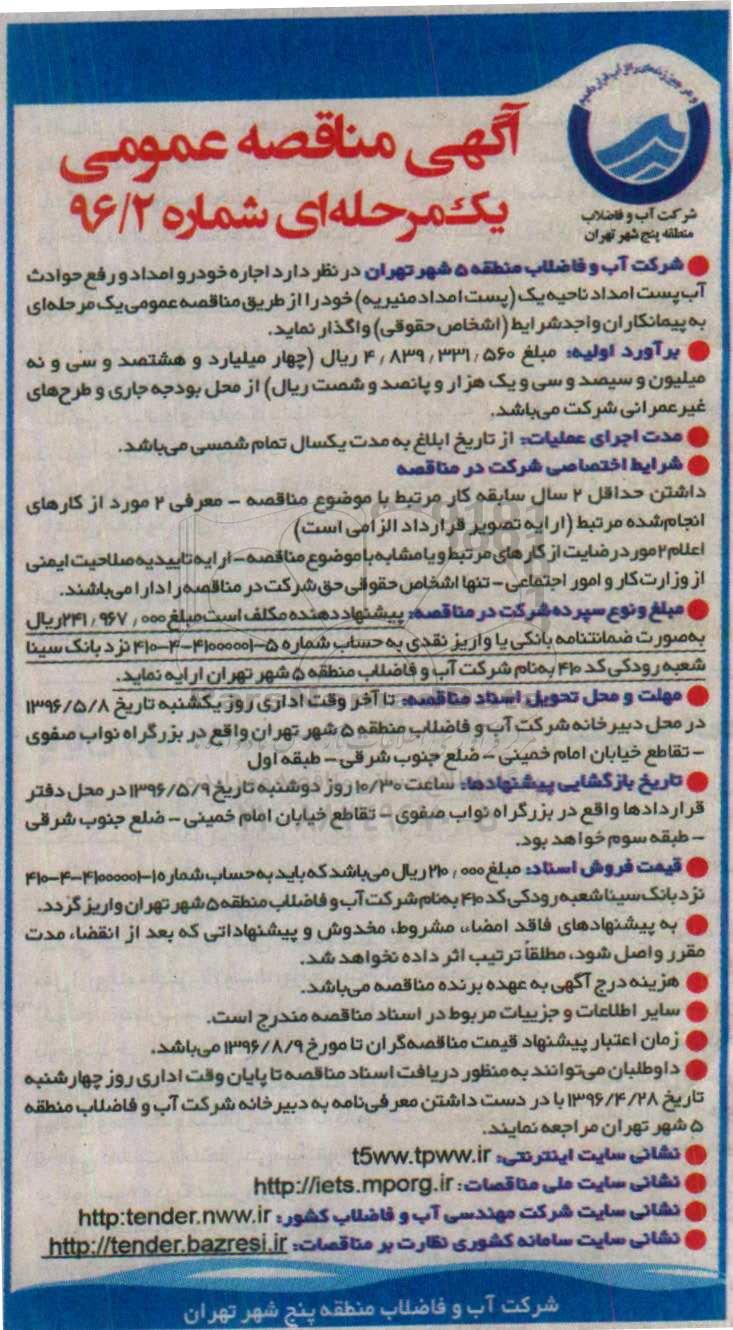 و هر چیز زنده‌ای را از آب قرار دادیم
شرکت آب و فاضلاب
منطقه پنج شهر تهران
آگهی مناقصه عمومی
یک‌مرحله‌ای شماره ۹۶/۲
شرکت آب و فاضلاب منطقه ۵ شهر تهران در نظر دارد اجاره خودرو امداد و رفع حوادث
آب پست امداد ناحیه یک (پست امداد منیریه) خود را از طریق مناقصه عمومی یک مرحله‌ای
به پیمانکاران واجد شرایط (اشخاص حقوقی) واگذار نماید.
برآورد اولیه: مبلغ ۴٫۸۳۹٫۳۳۱٫۵۶۰ ریال (چهار میلیارد و هشتصد و سی و نه
میلیون و سیصد و سی و یک هزار و پانصد و شصت ریال) از محل بودجه جاری و طرح‌های
غیرعمرانی شرکت می‌باشد.
مدت اجرای عملیات: از تاریخ ابلاغ به مدت یکسال تمام شمسی می‌باشد.
شرایط اختصاصی شرکت در مناقصه
داشتن حداقل ۲ سال سابقه کار مرتبط با موضوع مناقصه - معرفی ۲ مورد از کارهای
انجام‌شده مرتبط (ارایه تصویر قرارداد الزامی است)
اعلام ۲ مورد رضایت از کارهای مرتبط و یا مشابه با موضوع مناقصه - ارایه تاییدیه صلاحیت ایمنی
از وزارت کار و امور اجتماعی - تنها اشخاص حقوقی حق شرکت در مناقصه را دارا می‌باشند.
مبلغ و نوع سپرده شرکت در مناقصه: پیشنهاد دهنده مکلف است مبلغ ۲۴۱٫۹۶۷٫۰۰۰ ریال
به‌صورت ضمانتنامه بانکی یا واریز نقدی به حساب شماره ۵-۴۱۰۰۰۰۰۱-۴-۴۱۰ نزد بانک سینا
شعبه رودکی کد ۴۱۰ به‌نام شرکت آب و فاضلاب منطقه ۵ شهر تهران ارایه نماید.
مهلت و محل تحویل اسناد مناقصه: تا آخر وقت اداری روز یکشنبه تاریخ ۱۳۹۶/۵/۸
در محل دبیرخانه شرکت آب و فاضلاب منطقه ۵ شهر تهران واقع در بزرگراه نواب صفوی
- تقاطع خیابان امام خمینی - ضلع جنوب شرقی - طبقه اول
تاریخ بازگشایی پیشنهادها: ساعت ۱۰/۳۰ روز دوشنبه تاریخ ۱۳۹۶/۵/۹ در محل دفتر
قراردادها واقع در بزرگراه نواب صفوی - تقاطع خیابان امام خمینی - ضلع جنوب شرقی
- طبقه سوم خواهد بود.
قیمت فروش اسناد: مبلغ ۲۱۰٫۰۰۰ ریال می‌باشد که باید به حساب شماره ۱-۴۱۰۰۰۰۰۱-۴-۴۱۰
نزد بانک سینا شعبه رودکی کد ۴۱۰ به‌نام شرکت آب و فاضلاب منطقه ۵ شهر تهران واریز گردد.
به پیشنهادهای فاقد امضاء، مشروط، مخدوش و پیشنهاداتی که بعد از انقضاء مدت
مقرر واصل شود، مطلقاً ترتیب اثر داده نخواهد شد.
هزینه درج آگهی به عهده برنده مناقصه می‌باشد.
سایر اطلاعات و جزییات مربوط در اسناد مناقصه مندرج است.
زمان اعتبار پیشنهاد قیمت مناقصه‌گران تا مورخ ۱۳۹۶/۸/۹ می‌باشد.
داوطلبان می‌توانند به منظور دریافت اسناد مناقصه تا پایان وقت اداری روز چهارشنبه
تاریخ ۱۳۹۶/۴/۲۸ با در دست داشتن معرفی‌نامه به دبیرخانه شرکت آب و فاضلاب منطقه
۵ شهر تهران مراجعه نمایند.
نشانی سایت اینترنتی: t5ww.tpww.ir
نشانی سایت ملی مناقصات: http://iets.mporg.ir
نشانی سایت شرکت مهندسی آب و فاضلاب کشور: http:tender.nww.ir
نشانی سایت سامانه کشوری نظارت بر مناقصات: http://tender.bazresi.ir
شرکت آب و فاضلاب منطقه پنج شهر تهران